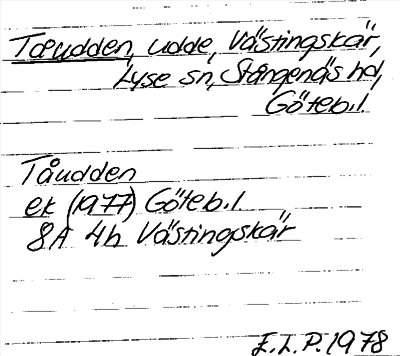 Tæudden, udde, Västingskär,
Lyse sn, Stångenäs hd,
Göteb.l.
Tåudden
ek (1977) Göteb.l.
8A 4h Västingskär
E.L.P. 1978